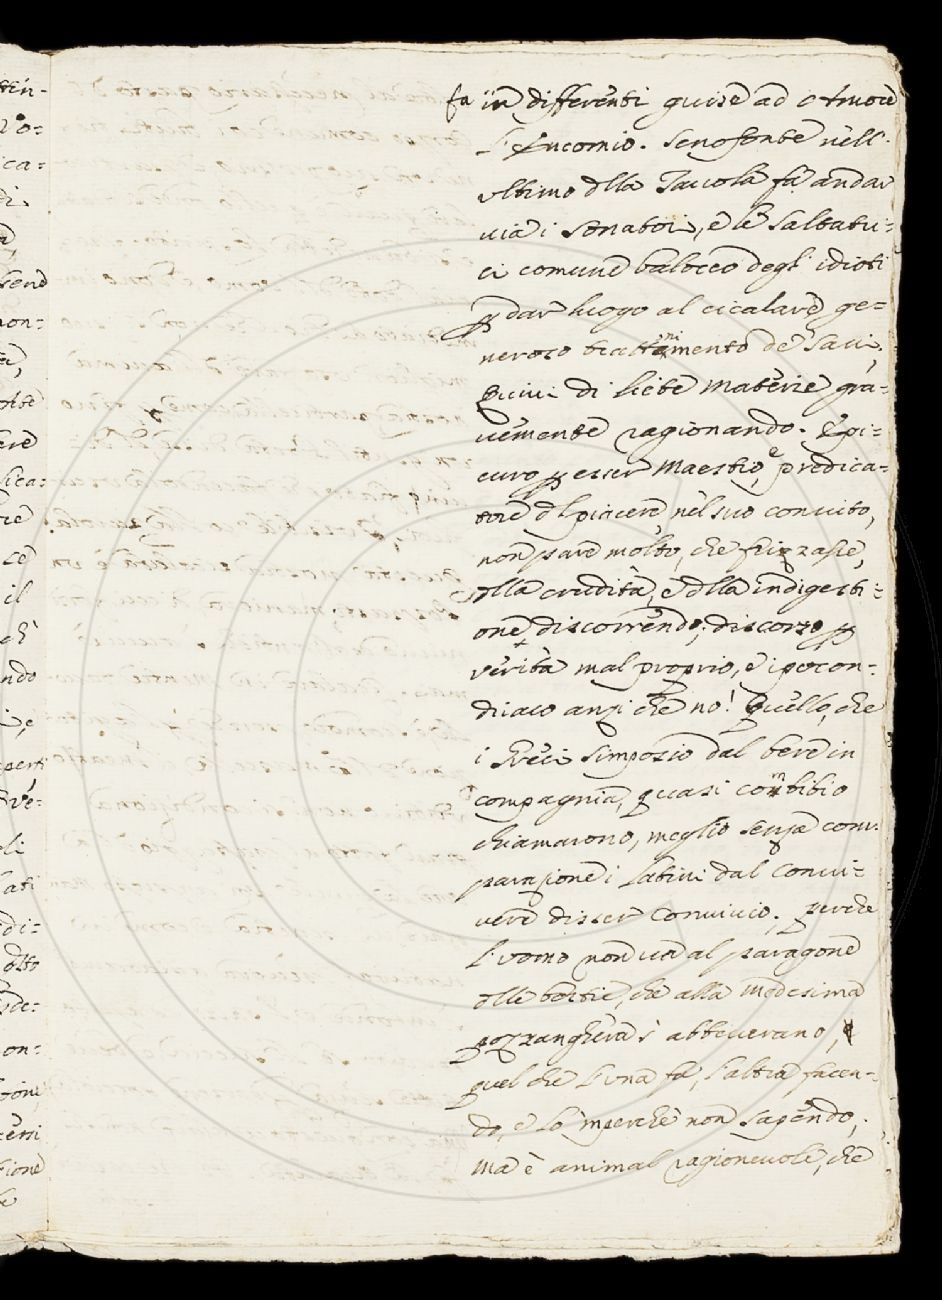 fa in differenti guise ad otto voce
l'Encomio. Senofonte nell'
ultimo dlla Tavola fà andar
via i sonatori, e le saltatri=
ci comune balocco degl'idioti
p dar luogo al cicalare ge=
neroso trattenimento de' savi,
Quivi di liete materie gra=
vemente ragionando. Epi=
curo p esser maestro, e predica=
tore dl piacere, nel suo convito,
non pare molto, che frizzasse,
dlla crudità, e dlla indigesti=
one, discorrendo; discorso p
verità mal proprio, e ipocon=
driaco anzi che no! Quello, che
i Greci simposio dal bere in
compagnia, quasi combibio
chiamarono, meglio senza com=
parazione i Latini dal convi=
vere disser Convivio. perche
l'uomo non va al paragone
dlle bestie, che alla medesima
pozzanghera s'abbeverano,
quel che l'una fà, l'altra facen=
do, e lo imperchè non sapendo,
ma è animal ragionevole, che